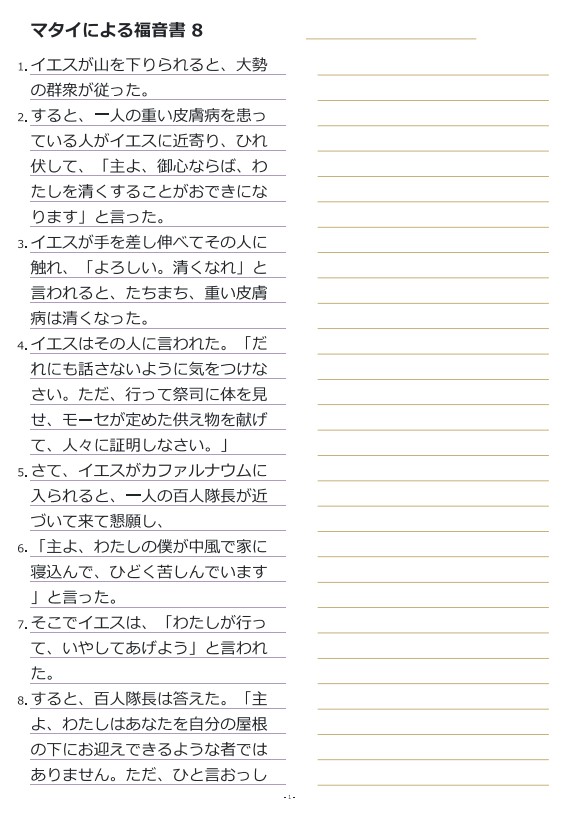 マタイによる福音書 8
1. イエスが山を下りられると、大勢
の群衆が従った。
2. すると、一人の重い皮膚病を患っ
ている人がイエスに近寄り、ひれ
伏して、「主よ、御心ならば、わ
たしを清くすることがおできにな
ります」と言った。
3. イエスが手を差し伸べてその人に
触れ、「よろしい。清くなれ」と
言われると、たちまち、重い皮膚
病は清くなった。
4. イエスはその人に言われた。「だ
れにも話さないように気をつけな
さい。ただ、行って祭司に体を見
せ、モーセが定めた供え物を献げ
て、人々に証明しなさい。」
5. さて、イエスがカファルナウムに
入られると、一人の百人隊長が近
づいて来て懇願し、
6. 「主よ、わたしの僕が中風で家に
寝込んで、ひどく苦しんでいます
」と言った。
7. そこでイエスは、「わたしが行っ
て、いやしてあげよう」と言われ
た。
8. すると、百人隊長は答えた。「主
よ、わたしはあなたを自分の屋根
の下にお迎えできるような者では
ありません。ただ、ひと言おっし
- 1 -